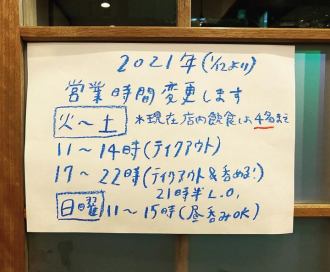 2021年(1/12より)
営業時間変更します
火～土 ※現在店内飲食は4名まで
11～14時(テイクアウト)
17～22時(テイクアウト&呑める!)
21時半L.O.
日曜 11～15時(昼呑みOK)